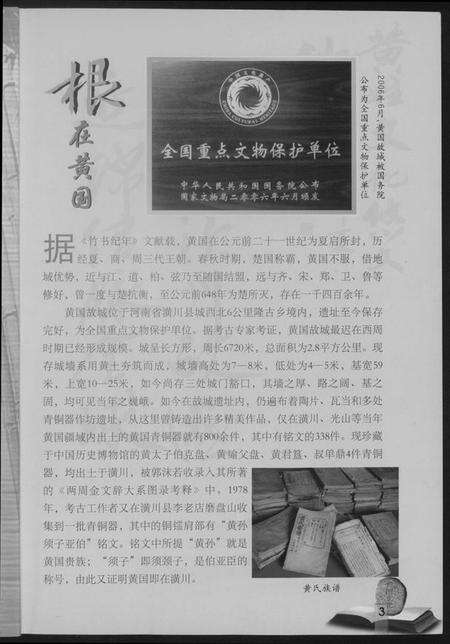 根在黄国
中国文化遗产
CHINA CULTURAL HERITAGE
全国重点文物保护单位
中华人民共和国国务院公布
国家文物局二零零六年六月颁发
2006年6月，黄国故城被国务院
公布为全国重点文物保护单位
据《竹书纪年》文献载，黄国在公元前二十一世纪为夏启所封，历
经夏、商、周三代王朝。春秋时期，楚国称霸，黄国不服，借地
域优势，近与江、道、柏、弦乃至随国结盟，远与齐、宋、郑、卫、鲁等
修好，曾一度与楚抗衡，至公元前648年为楚所灭，存在一千四百余年。
黄国故城位于河南省潢川县城西北6公里隆古乡境内，遗址至今保存
完好，为全国重点文物保护单位。据考古专家考证，黄国故城最迟在西周
时期已经形成规模。城呈长方形，周长6720米，总面积为2.8平方公里。现
存城墙系用黄土夯筑而成，城墙高处为7—8米，低处为4—5米，基宽59
米，上宽10—25米，如今尚存三处城门豁口，其墙之厚、路之阔、基之
固，均可见当年之巍峨。如今在故城遗址内，仍遍布着陶片、瓦当和多处
青铜器作坊遗址，从这里曾铸造出许多精美作品，仅在潢川、光山等当年
黄国疆域内出土的黄国青铜器就有800余件，其中有铭文的338件。现珍藏
于中国历史博物馆的黄太子伯克盘、黄缩父盘、黄君簋、叔单鼎4件青铜
器，均出土于潢川，被郭沫若收录入其所著
的《两周金文辞大系图录考释》中。1978
年，考古工作者又在潢川县李老店磨盘山收
集到一批青铜器，其中的铜镭肩部有“黄孙
须子亚伯”铭文。铭文中所提“黄孙”就是
黄国贵族；“须子”即须颈子，是伯亚臣的
称号，由此又证明黄国即在潢川。
黄氏族谱
3